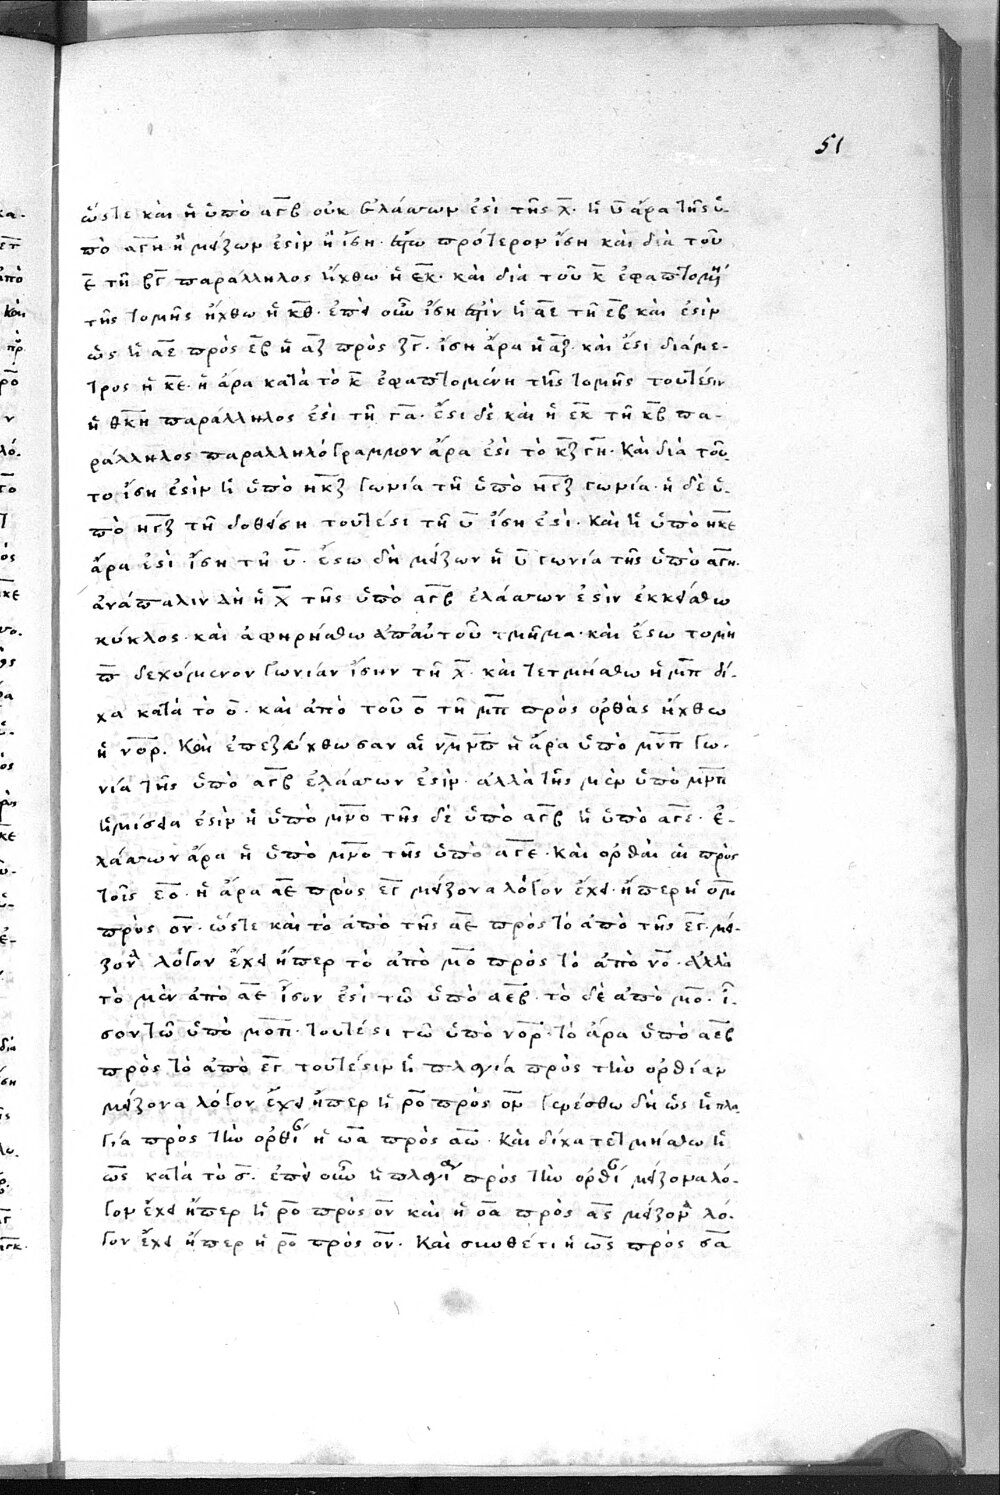 51
ὥστε καὶ ἡ ὑπὸ αγβ οὐκ ἐλάσσων ἐστὶ τῆς χ. ἡ υ ἄρα τῆς ὑ-
πὸ αγη ἢ μείζων ἐστὶν ἢ ἴση. ἔστω πρότερον ἴση καὶ διὰ τοῦ
ε τῇ βγ παράλληλος ἤχθω ἡ εκ. καὶ διὰ τοῦ κ ἐφαπτομένη
τῆς τομῆς ἤχθω ἡ κθ. ἐπεὶ οὖν ἴση ἐστὶν ἡ αε τῇ εβ καὶ ἐστὶν
ὡς ἡ αε πρὸς εβ ἡ αζ πρὸς ζγ. ἴση ἄρα ἡ αζ. καὶ ἐστι διάμε-
τρος ἡ κε. ἡ ἄρα κατὰ τὸ κ ἐφαπτομένη τῆς τομῆς τουτέστιν
ἡ θκη παράλληλος ἐστὶ τῇ γα. ἔστι δὲ καὶ ἡ εκ τῇ κβ πα-
ράλληλος παραλληλόγραμμον ἄρα ἐστὶ τὸ κζγη. καὶ διὰ τοῦ-
το ἴση ἐστὶν ἡ ὑπὸ ηκζ γωνία τῇ ὑπὸ ηγζ γωνία. ἡ δὲ ὑ-
πὸ ηγζ τῇ δοθείσῃ τουτέστι τῇ υ ἴση ἐστί. καὶ ἡ ὑπὸ ηκε
ἄρα ἐστὶ ἴση τῇ υ. ἔστω δὴ μείζων ἡ υ γωνία τῆς ὑπὸ αγη.
ἀνάπαλιν δὴ ἡ χ τῆς ὑπὸ αγβ ἐλάσσων ἐστὶν ἐκκείσθω
κύκλος. καὶ ἀφηρήσθω ἀπ αὐτοῦ τμῆμα. καὶ ἔστω το μη
π δεχόμενον γωνίαν ἴσην τῇ χ. καὶ τετμήσθω ἡ μπ δί-
χα κατὰ τὸ ο. καὶ ἀπὸ τοῦ ο τῇ μπ πρὸς ὀρθὰς ἤχθω
ἡ νορ. καὶ ἐπεζεύχθωσαν αἱ νμ νπ ἡ ἄρα ὑπὸ μνπ γω-
νία τῆς ὑπὸ αγβ ἐλάσσων ἐστίν. ἀλλὰ τῆς μὲν ὑπὸ μνπ
ἡμίσεια ἐστὶν ἡ ὑπὸ μνο τῆς δὲ ὑπὸ αγβ ἡ ὑπὸ αγε. ἐ-
λάσσων ἄρα ἡ ὑπὸ μνο τῆς ὑπὸ αγε. καὶ ὀρθαὶ αἱ πρὸς
τοῖς εο. ἡ ἄρα αε πρὸς εγ μείζονα λόγον ἔχει. ἤπερ ἡ ομ
πρὸς ον. ὥστε καὶ τὸ ἀπὸ τῆς αε πρὸς τὸ ἀπὸ τῆς εγ. μεί-
ζονα λόγον ἔχει ἤπερ τὸ ἀπὸ μο πρὸς τὸ ἀπὸ νο. ἀλλὰ
τὸ μὲν ἀπὸ αε ἴσον ἐστὶ τῷ ὑπὸ αεβ. τὸ δὲ ἀπὸ μο. ἴ-
σον τῷ ὑπὸ μοπ. τουτέστι τῷ ὑπὸ νορ. τὸ ἄρα ὑπὸ αεβ
πρὸς τὸ ἀπὸ εγ τουτέστιν ἡ πλαγία πρὸς τὴν ὀρθίαν
μείζονα λόγον ἔχει ἤπερ ἡ ρο πρὸς ον γενέσθω δὴ ὡς ἡ πλα
γία πρὸς τὴν ὀρθίαν ἡ ωα πρὸς αω. καὶ δίχα τετμήσθω ἡ
ως κατὰ τὸ ς. ἐπεὶ οὖν ἡ πλαγία πρὸς τὴν ὀρθίαν μείζονα λό-
γον ἔχει ἤπερ ἡ ρο πρὸς ον καὶ ἡ οα πρὸς ας μείζονα λό-
γον ἔχει ἤπερ ἡ ρο πρὸς ον. καὶ συνθέτι ἡ ως πρὸς σα